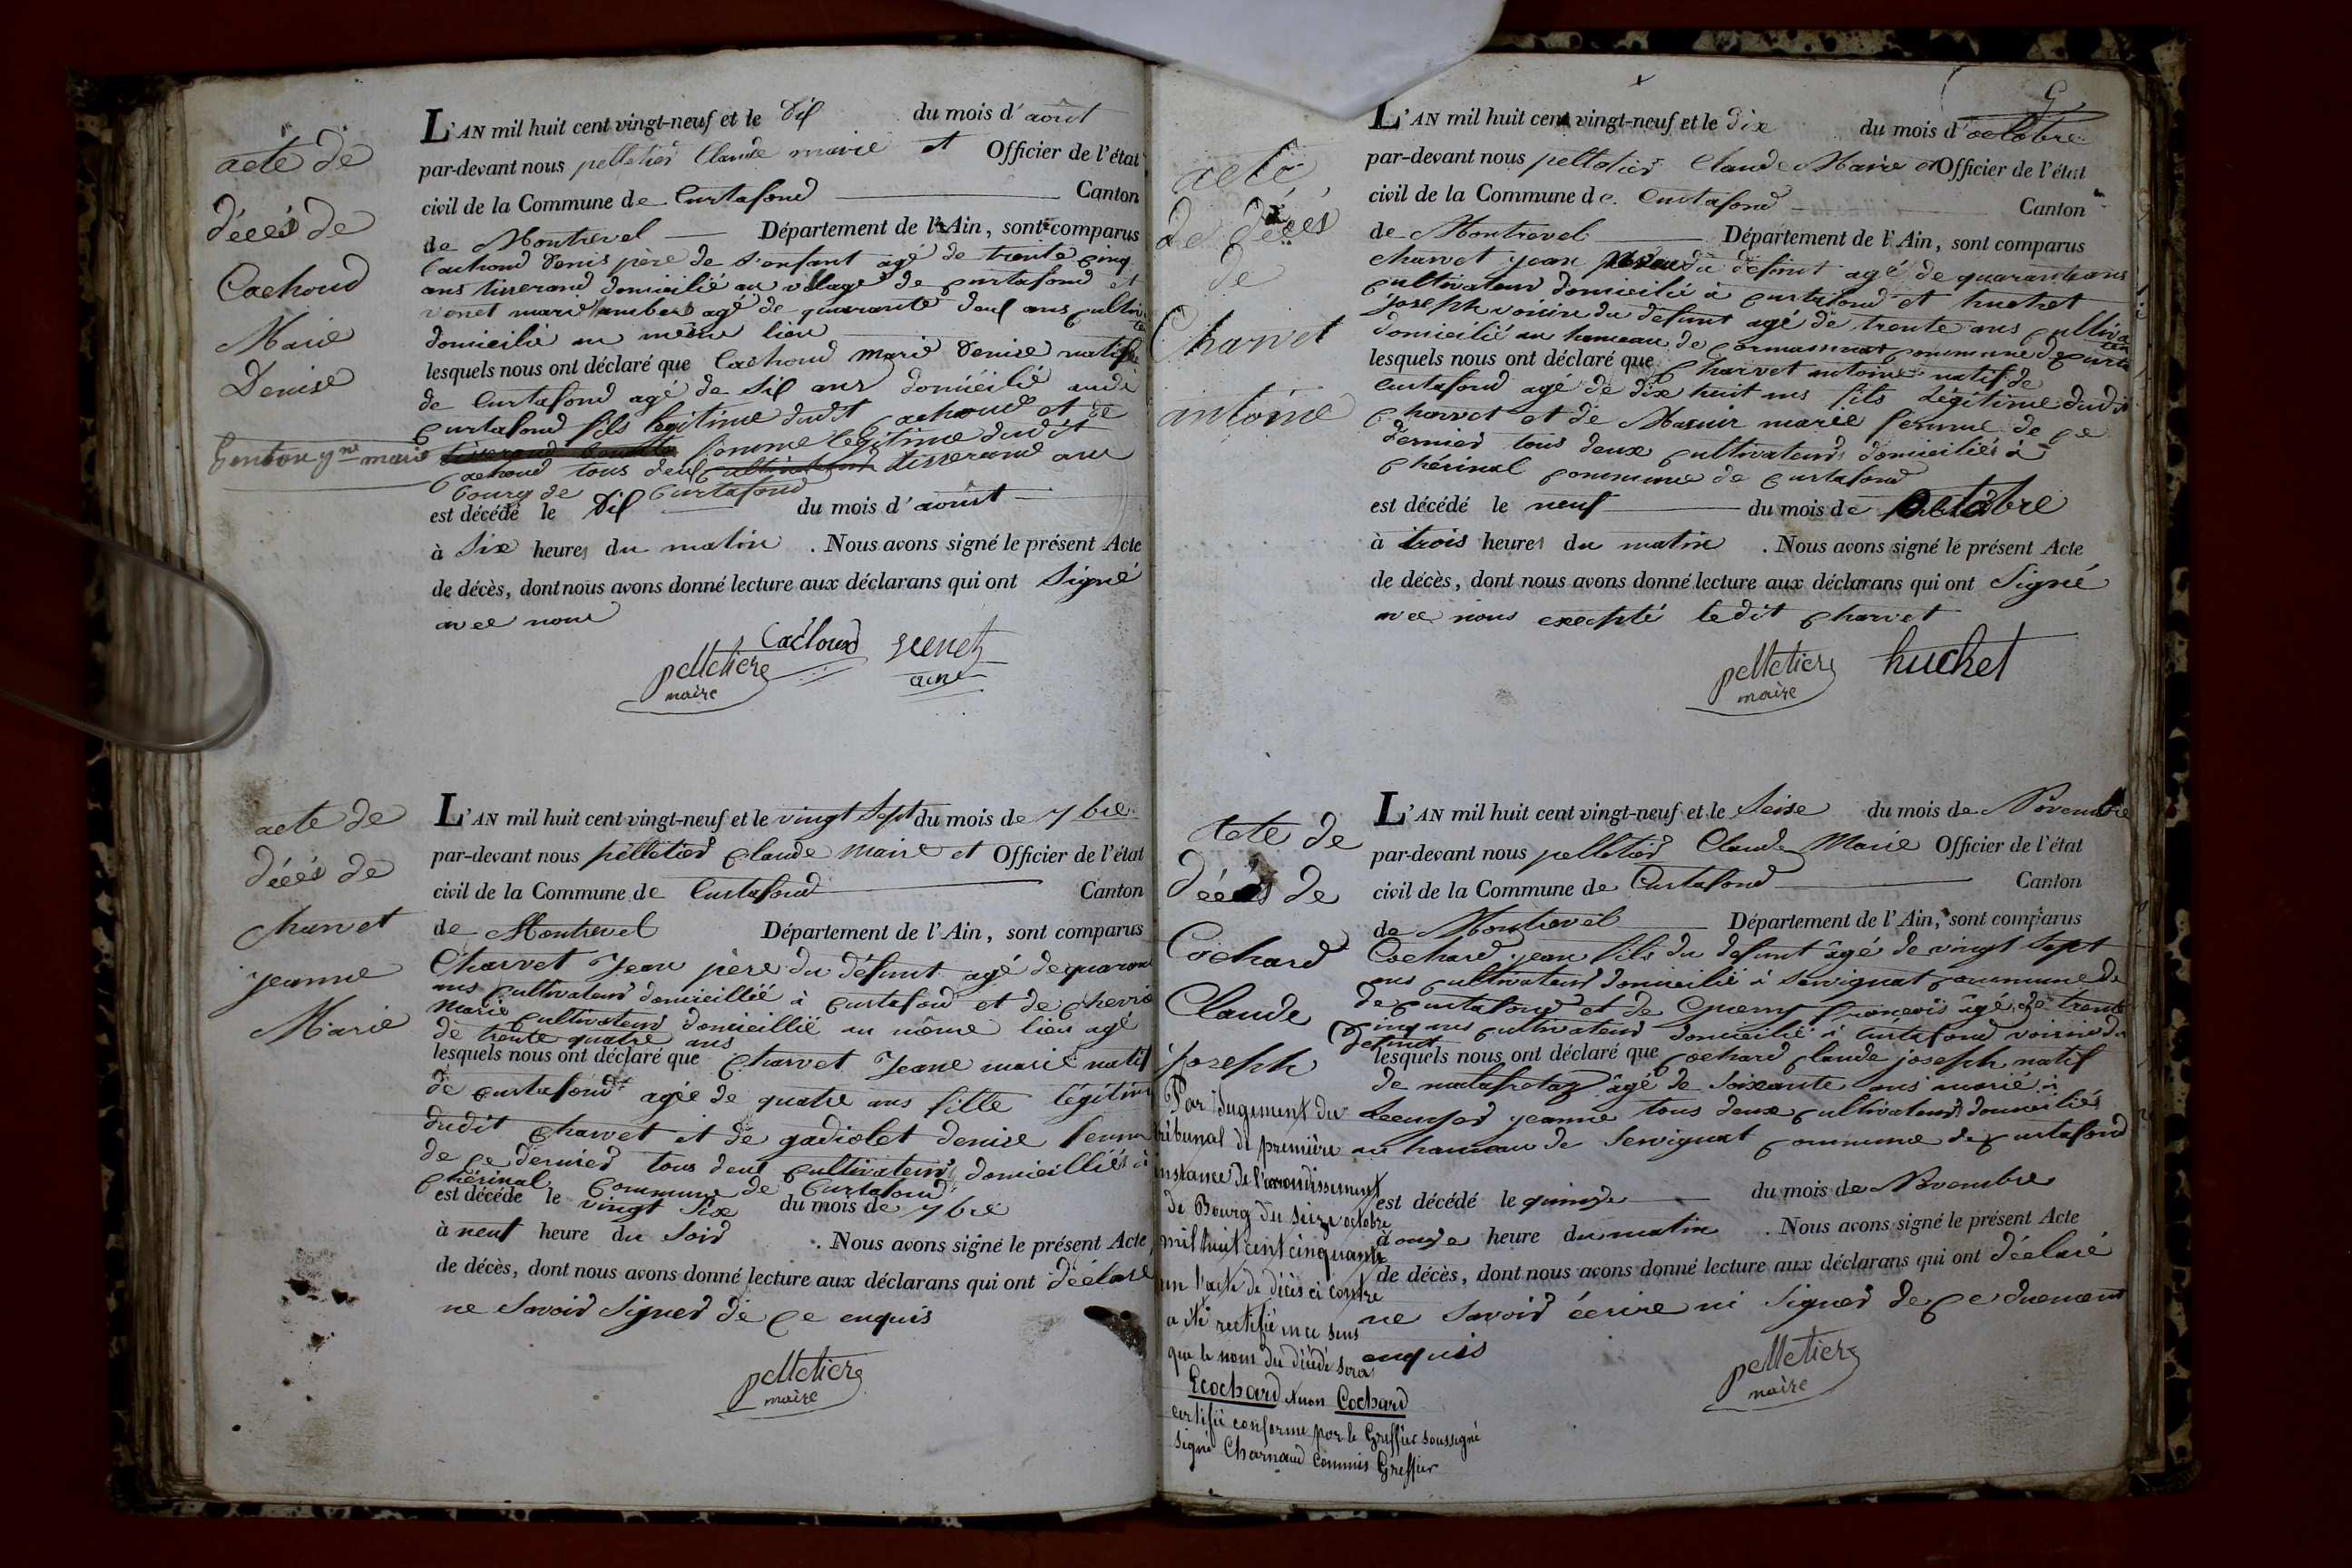 acte de
décès de
Cachoud
Marie
Denise
L'AN mil huit cent vingt-neuf et le dix du mois d'août
par-devant nous pelletier Claude maire et Officier de l'état
civil de la Commune de Curtafond Canton
de Montrevel Département de l'Ain, sont comparus
Cachoud Denis père de l'enfant agé de trente cinq
ans tisserand domicilié au village de curtafond et
venet marie humbert agé de quarante deux ans cultiv
domicilié au même lieu
lesquels nous ont déclaré que Cachoud marie Denise natif
de Curtafond agé de six ans domicilié audi
Curtafond fils légitime dudit Cachoud et de
Genton marie femme légitime dudit
Cachoud tous deux tisserand au
bourg de Curtafond
est décédé le dix du mois d'août
à six heures du matin . Nous avons signé le présent Acte
de décès, dont nous avons donné lecture aux déclarans qui ont signé
avec nous
Cachoud venet
pelletier ainé
maire
acte de
décès de
charvet
jeanne
Marie
L'AN mil huit cent vingt-neuf et le vingt sept du mois de 7bre
par-devant nous pelletier claude maire et Officier de l'état
civil de la Commune de Curtafond Canton
de Montrevel Département de l'Ain, sont comparus
Charvet Jean père du défunt agé de quarante
ans cultivateur domicillié à curtafond et de
Marie cultivateur domicillié au même lieu agé
de trente quatre ans
lesquels nous ont déclaré que charvet Jeane marie natif
de curtafond agée de quatre ans fille légitime
dudit charvet et de gadiolet denise femme
de ce dernier tous deux cultivateurs domicilliés à
chérinal commune de Curtafond
est décédé le vingt six du mois de 7bre
à neuf heure du soir . Nous avons signé le présent Acte
de décès, dont nous avons donné lecture aux déclarans qui ont déclaré
ne savoir signer de ce enquis
pelletier
maire
acte
de décès
de
Charvet
antoine
L'AN mil huit cent vingt-neuf et le dix du mois d'octobre
par-devant nous pelletier Claude Maire et Officier de l'état
civil de la Commune de Curtafond Canton
de Montrevel Département de l'Ain, sont comparus
charvet jean père du défunt agé de quarante ans
cultivateur domicilié à curtafond et huchet
joseph voisin du défunt agé de trente ans cultiva
domicilié au hameau de cormassinat commune de curta
lesquels nous ont déclaré que charvet antoine natif de
curtafond agé de dix huit ans fils légitime dudit
charvet et de marie femme de ce
dernier tous deux cultivateurs domiciliés à
chérinal commune de curtafond
est décédé le neuf du mois de octobre
à trois heures du matin . Nous avons signé le présent Acte
de décès, dont nous avons donné lecture aux déclarans qui ont signé
avec nous excepté ledit charvet
pelletier huchet
maire
acte de
décès de
Cochard
Claude
joseph
L'AN mil huit cent vingt-neuf et le seise du mois de Novembre
par-devant nous pelletier Claude Marie Officier de l'état
civil de la Commune de Curtafond Canton
de Montrevel Département de l'Ain, sont comparus
Cochard jean fils du défunt âgé de vingt sept
ans cultivateur domicilié à servignat commune de
de curtafond et de françois âgé de trente
cinq ans cultivateur domicilié à curtafond voisin du
défunt
lesquels nous ont déclaré que cochard claude joseph natif
de malafretaz âgé de soixante ans marié à
jeanne tous deux cultivateurs domiciliés
au hameau de servignat commune de curtafond
est décédé le quinze du mois de Novembre
à onze heure du matin . Nous avons signé le présent Acte
de décès, dont nous avons donné lecture aux déclarans qui ont déclaré
ne savoir écrire ni signer de ce duement
enquis
pelletier
maire
Par Jugement du
tribunal de première
instance de l'arrondissement
de Bourg du seize octobre
mil huit cent cinquante
un l'acte de décès ci contre
a été rectifié en ce sens
que le nom du décédé sera
Ecochard & non Cochard
certifié conforme par le Greffier soussigné
signé Charnaud commis Greffier